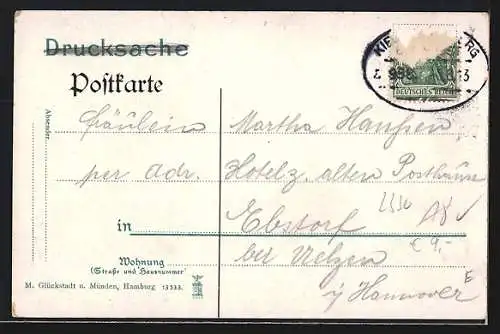 Drucksache
Postkarte
Absender
Fräulein
per Adr.
Martha Hanssen
Hotel z. alten Posthaus
in Ebstorf
bei Uelzen
Hannover
Wohnung
(Straße und Hausnummer)
M. Glückstadt u. Münden, Hamburg
DEUTSCHES REICH
€ 9,-
E